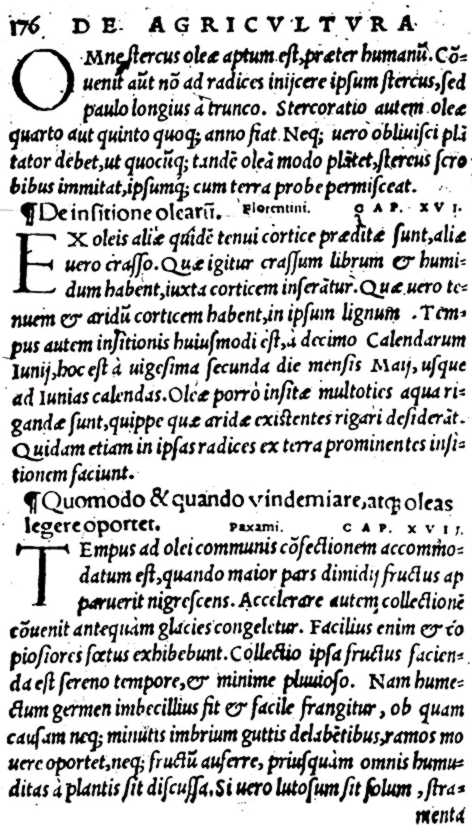 176 DE AGRICVLTVRA
OMne stercus oleæ aptum est, præter humanũ. Cõ-
uenit aũt nõ ad radices inijcere ipsum stercus, sed
paulo longius à trunco. Stercoratio autem oleæ
quarto aut quinto quoq; anno fiat. Neq; uerò obliuisci plã
tator debet, ut quocũq; tandẽ oleã modo plãtet, stercus scro
bibus immitat, ipsumq; cum terra probe permisceat.
¶ De insitione olearũ. Florentini. CAP. XVI.
EX oleis aliæ quidẽ tenui cortice præditæ sunt, aliæ
uero crasso. Quæ igitur crassum librum & humi-
dum habent, iuxta corticem inserãtur. Quæ uero te-
nuem & aridũ corticem habent, in ipsum lignum. Tem-
pus autem insitionis huiusmodi est, à decimo Calendarum
Iunij, hoc est à uigesima secunda die mensis Maij, usque
ad Iunias calendas. Oleæ porrò insitæ multoties aqua ri-
gandæ sunt, quippe quæ aridæ existentes rigari desiderãt.
Quidam etiam in ipsas radices ex terra prominentes insi-
tionem faciunt.
¶ Quomodo & quando vindemiare, atq; oleas
legere oportet. Paxami. CAP. XVII.
TEmpus ad olei communis cõfectionem accommo-
datum est, quando maior pars dimidij fructus ap
paruerit nigrescens. Accelerare autem collectionẽ
cõuenit antequàm glacies congeletur. Facilius enim & co
piosiores fœtus exhibebunt. Collectio ipsa fructus facien-
da est sereno tempore, & minime pluuioso. Nam hume-
ctum germen imbecillius fit & facile frangitur, ob quam
causam neq; minutis imbrium guttis delabẽtibus, ramos mo
uere oportet, neq; fructũ auferre, priusquàm omnis humi-
ditas à plantis sit discussa. Si uero lutosum sit solum, stra-
menta